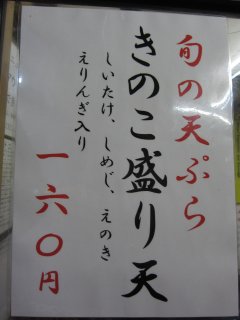 旬の天ぷら
きのこ盛り天
しいたけ、しめじ、えのき
えりんぎ入り
一六〇円